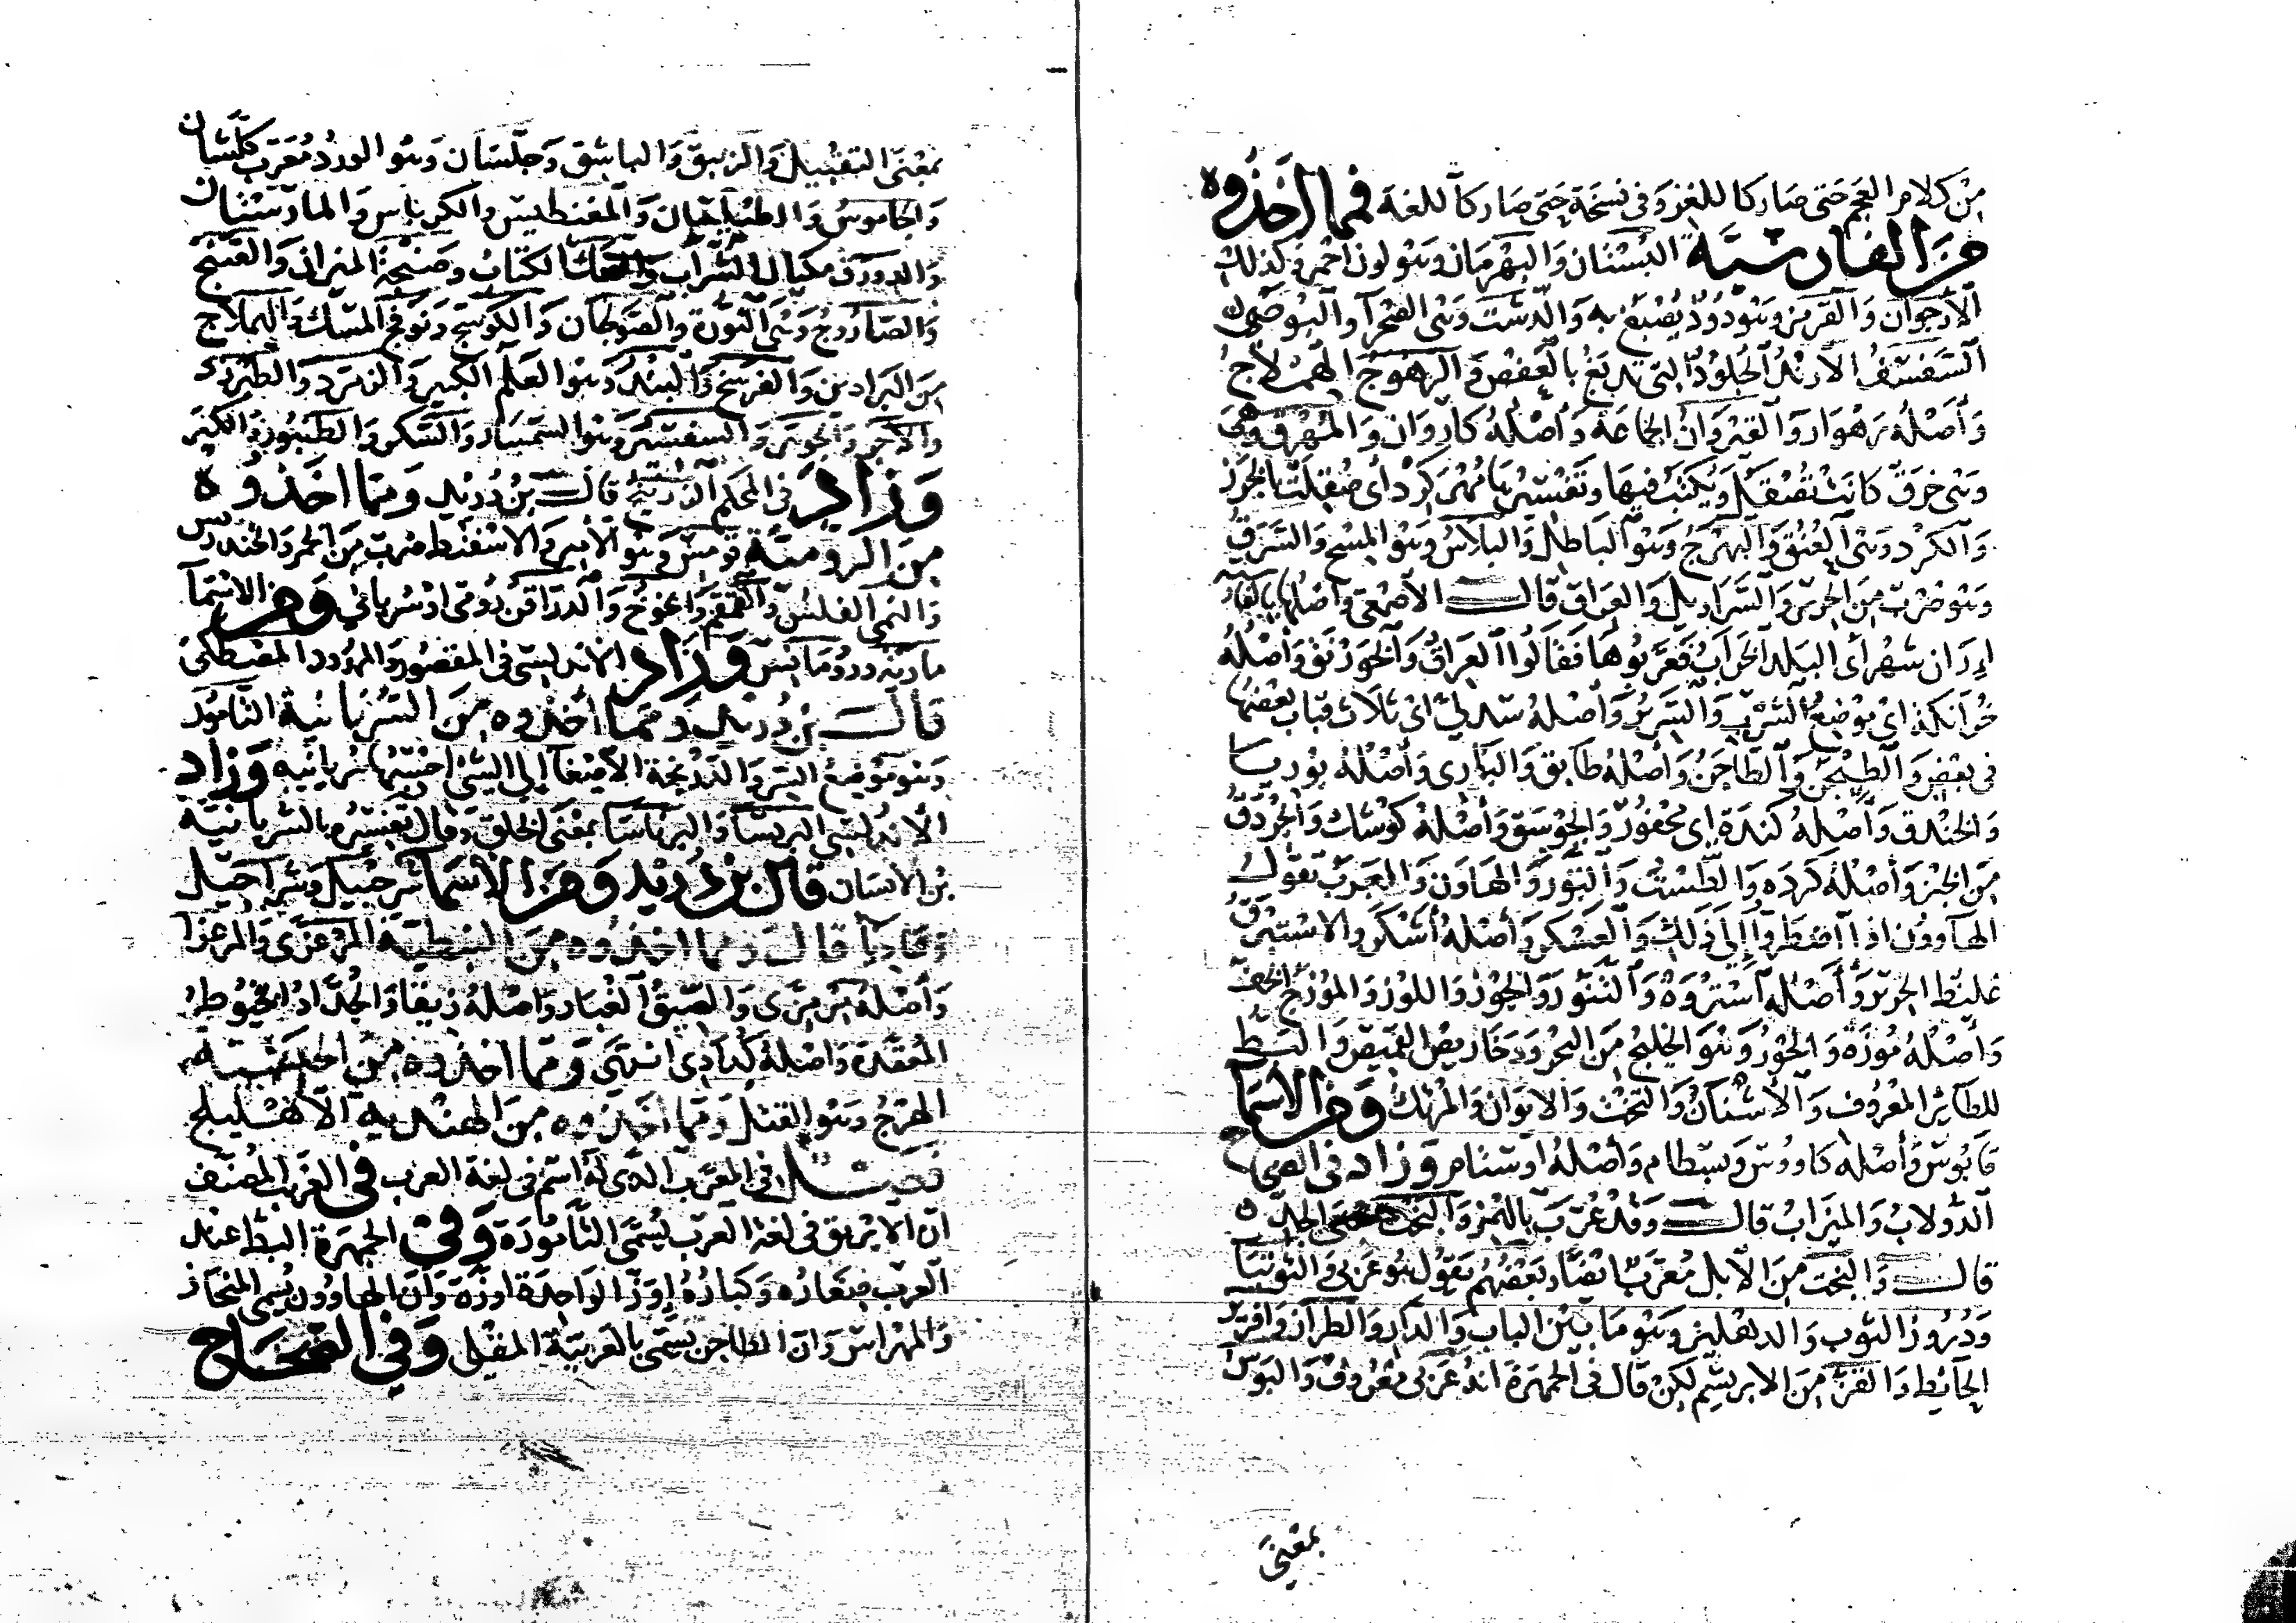 مِنْ كلام العَجَم حَتى صَارَ كا للغز وَفى نسْخَة حَتى صَارَ كا للغة فمما اخَذوه
من الفارسيَّة البُسْتَان وَالبَهْرَمان وَهو لون احمر وَكذلك
الأرجوان وَالقرمز وَهو دُودٌ يُصْبَغ به وَالدشت وَهى الصَّحْرآ والبُوصىّ
السَّفسَفُ الارَنْدَج الجُلودُ التى تدبغ بالعَفصْ وَالرهوَج الهمْلاجُ
وَأصْلهُ رَهْوَار وَالقيْرَوَانُ الجماعَة وَأصْلهُ كارِوان وَالمُهْرَق وَهى
وَهى خِرَقٌ كانَتْ تُصْقَل وَيُكتَبُ فيهَا وَتفسْيرهَا مُهْر كَرْد أى صُقِلتْ بالخرَز
وَالكَرْد وَهى العُنُق وَالبَهْرَجُ وَهو البَاطل وَالبَلاسُ وَهو المِسْح وَالسَّرَقُ
وَهو ضَرْبٌ مِنَ الحَرير وَالسَّرَاويل وَالعِرَاق قالــ الأصْمَعى وَأصْلهَا بالفار
إيران شهْر أى البلد الخرَابُ فعَرَّبوهَا فقالُوا العِرَاقُ وَالخَوَرْنَق وَأصْلُهُ
خُرانكَه اى مَوْضِعُ الشرْب وَالسَّدِيرُ وَأصْلهُ سِدِلىّ اىْ ثلاَث قبَاب بَعْضهَا
فى بَعْض وَالطَّيْجَن وَالطَّاجَن وَأصْلهُ طابق وَالبَارِى وَأصْلهُ بُورِيا
وَالخنْدق وَأصْلهُ كَندَة اى مَحْفُورٌ وَالجَوْسَق وَأصْلهُ كوُشك وَالجَرْدَقُ
مِنَ الخبْز وَأصْلهُ كَردَه وَالطَّسْتُ وَالتَّوْر وَالهَاون وَالعَرَب تقولُ
الهَاوُون اذا اضطرّوا إلى ذَلكَ وَالعَسْكَر وَأصْلهُ لشكر والاسْتبْرَقُ
غليظ الحرير وَأصْلهُ اسْتَرْوَهْ وَالتَّنُّور وَالجَوْزُ وَاللوْزُ وَالمُوْزَجُ الخفّ
وَأصْلهُ مُوزَه وَالخَوْرُ وَهو الخليجُ مِنَ البحْر وَدَخاريصُ القميْص وَالبَطّ
للطائر المعْرُوف وَالأشْنان وَالتَّخْت وَالايوَان وَالمَرْتك وَمن الأسما
قابُوس وَأصْلهُ كاووُس وَبسْطام وَأصْلهُ اوستام وزاد فى
الدُّولابُ وَالميزَابُ قالــ وَقدْ عُرِّبَ بالهَمْز وَالبَخْت بمعنى الجَدّ
قالــ وَالبُخْت مِنَ الأبل مُعَرَّبٌ ايْضًا وَبَعْضُهُمْ يَقوُل هو عَرَبى وَالتُّوتيا
وَدُرُوزُ الثوب وَالدهْليز وَهو مَا بَيْن الباب وَالدار وَالطراز وَافريز
الحَائِط وَالقَزّ مِنَ الابريسَم لكِنْ قال فى الجمهرَة انهُ عَرَبى مَعْرُوفٌ وَالبَوْسُ
بمَعْنى
بمَعْنَى التقبيل وَالزئبق وَالباشَق وَجُلَّسَان وَهو الورْدُ مُعَرَّب كُلَّشان
وَالجاموسُ وَالطيْلسَان وَالمغنطيس وَالكرباس وَالمارَستْان
وَالدورَق مكيال الشرَاب وَالصَّك الكتاب وَصَنْجَة الميزان وَالصَّنْج
وَالصَّارُوجُ وَهى النورَة وَالصَّوْلجَان وَالكوْسَج وَنَوَافج المسْك وَالهِمْلاج
مِنَ البَرَاذين وَالفرسَخ وَالبَنْدُ وَهو العَلَم الكبير وَالزمرد وَالطبرزد
وَالآجُر وَالجَوْهر وَالسفسير وَهو السمسَار وَالسُّكر وَالطنبُور وَالكُبَر
وَزَادَ فى المحكم الزرنيخُ قالــ بْن دُرَيْد وَمما اخَذوه
مِنَ الرُّوميَّة قومَس وَهو الأمير وَالاسْفنط ضرْب مِنَ الخمر وَالخندريس
وَالنُّمِّى الفلس وَالقمقم وَالخوخ وَالدراقن رُومى اوْ سُريانىّ وَمن الاسْمَا
مَاريَه وَرُومَانس وَزَاد الاندلسى فى المقصُور وَالممْدود المَصْطَكى
قالــ بْن دُرَيْد وَمما اخَذوه مِنَ السُّرْيانية التامُور
وَهو مَوْضع السِّر وَالدَّرْبخة الأصْغا الى الشئ احْسَبُهَا سُريَانيّه وَزاد
الاندلسى البرنسَا وَالبرْناسَا بمَعْنى الخلق وَقال تَفسيره بالسُّريانيّة
بْنُ الأنسَان قال بن دُريد وَمن الأسمَا شرحبيل وَشراحيل
وَعَاديَا قالــ وَمما اخَذوه مِنَ النبطيّة المَرْعزَّى وَالمرعزا
وَأصْلهُ مَريزَى وَالصِّيقُ الغبَار وَاصْلهُ زيقا وَالجُدَّادُ الخيُوط
المُعَقَّدَة وَاصْلهُ كُدَادى انتهى وَمما اخَذوه مِنَ الحبَشيّة
الهَرْجُ وَهو القَتل وَمما اخَذوه مِنَ الهنْديه الأهْليلج
فصْــل فى المعَرّب الذى لهُ اسْم فى لغة العرب فى الغَريب المُصَنّف
ان الابْريق فى لغة العرَب يُسَمّى التَّامُورَة وَفى الجمهَرَة البطّ عنْد
العَرب صغَارُه وَكبَارُهُ إوَزّ الوَاحِدَة اوزّة وَان الهَاوُون يُسَمى المنحَاز
وَالمهْرَاس وَان الطاجن يسَمّى بالعَرَبيّة المقْلى وَفى الصّحَاح